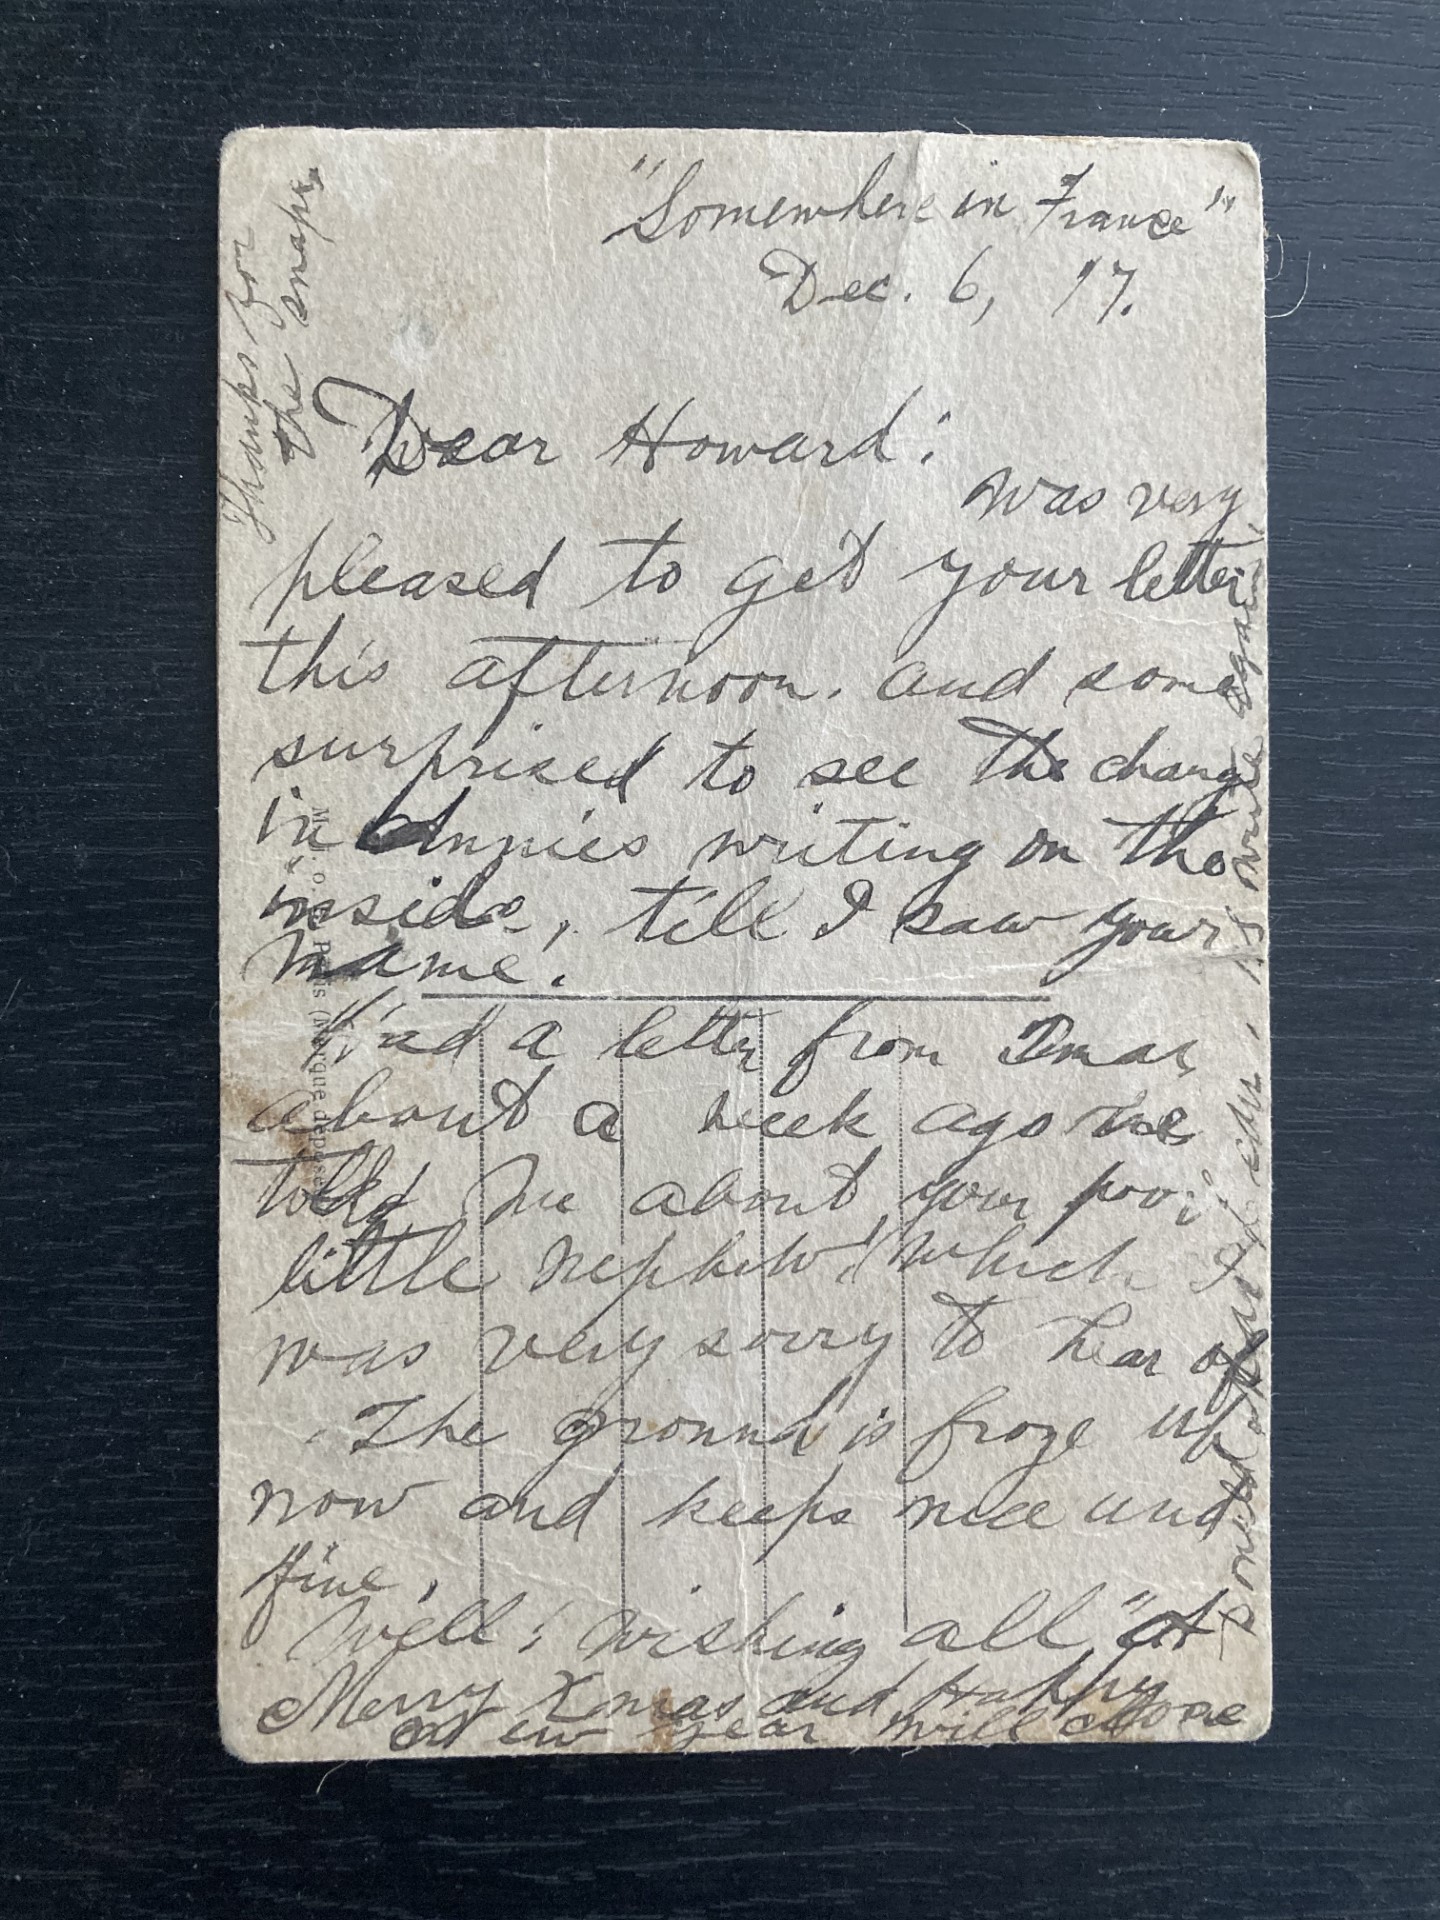 "Somewhere in France"
Dec. 6, '17.
Dear Howard:
was very
pleased to get your letter
this afternoon. and some
surprised to see the change
in Annies writing on the
inside, till I saw your
name.
Had a letter from
about a week ago
told me about your poor
little nephew, which I
was very sorry to hear of
. The ground is froze up
now and keeps nice and
fine,
Well! wishing all "A
Merry Xmas and Happy
New Year will close
write again,
Thanks for
the snaps.
M. J. o. Paris (Marque déposée